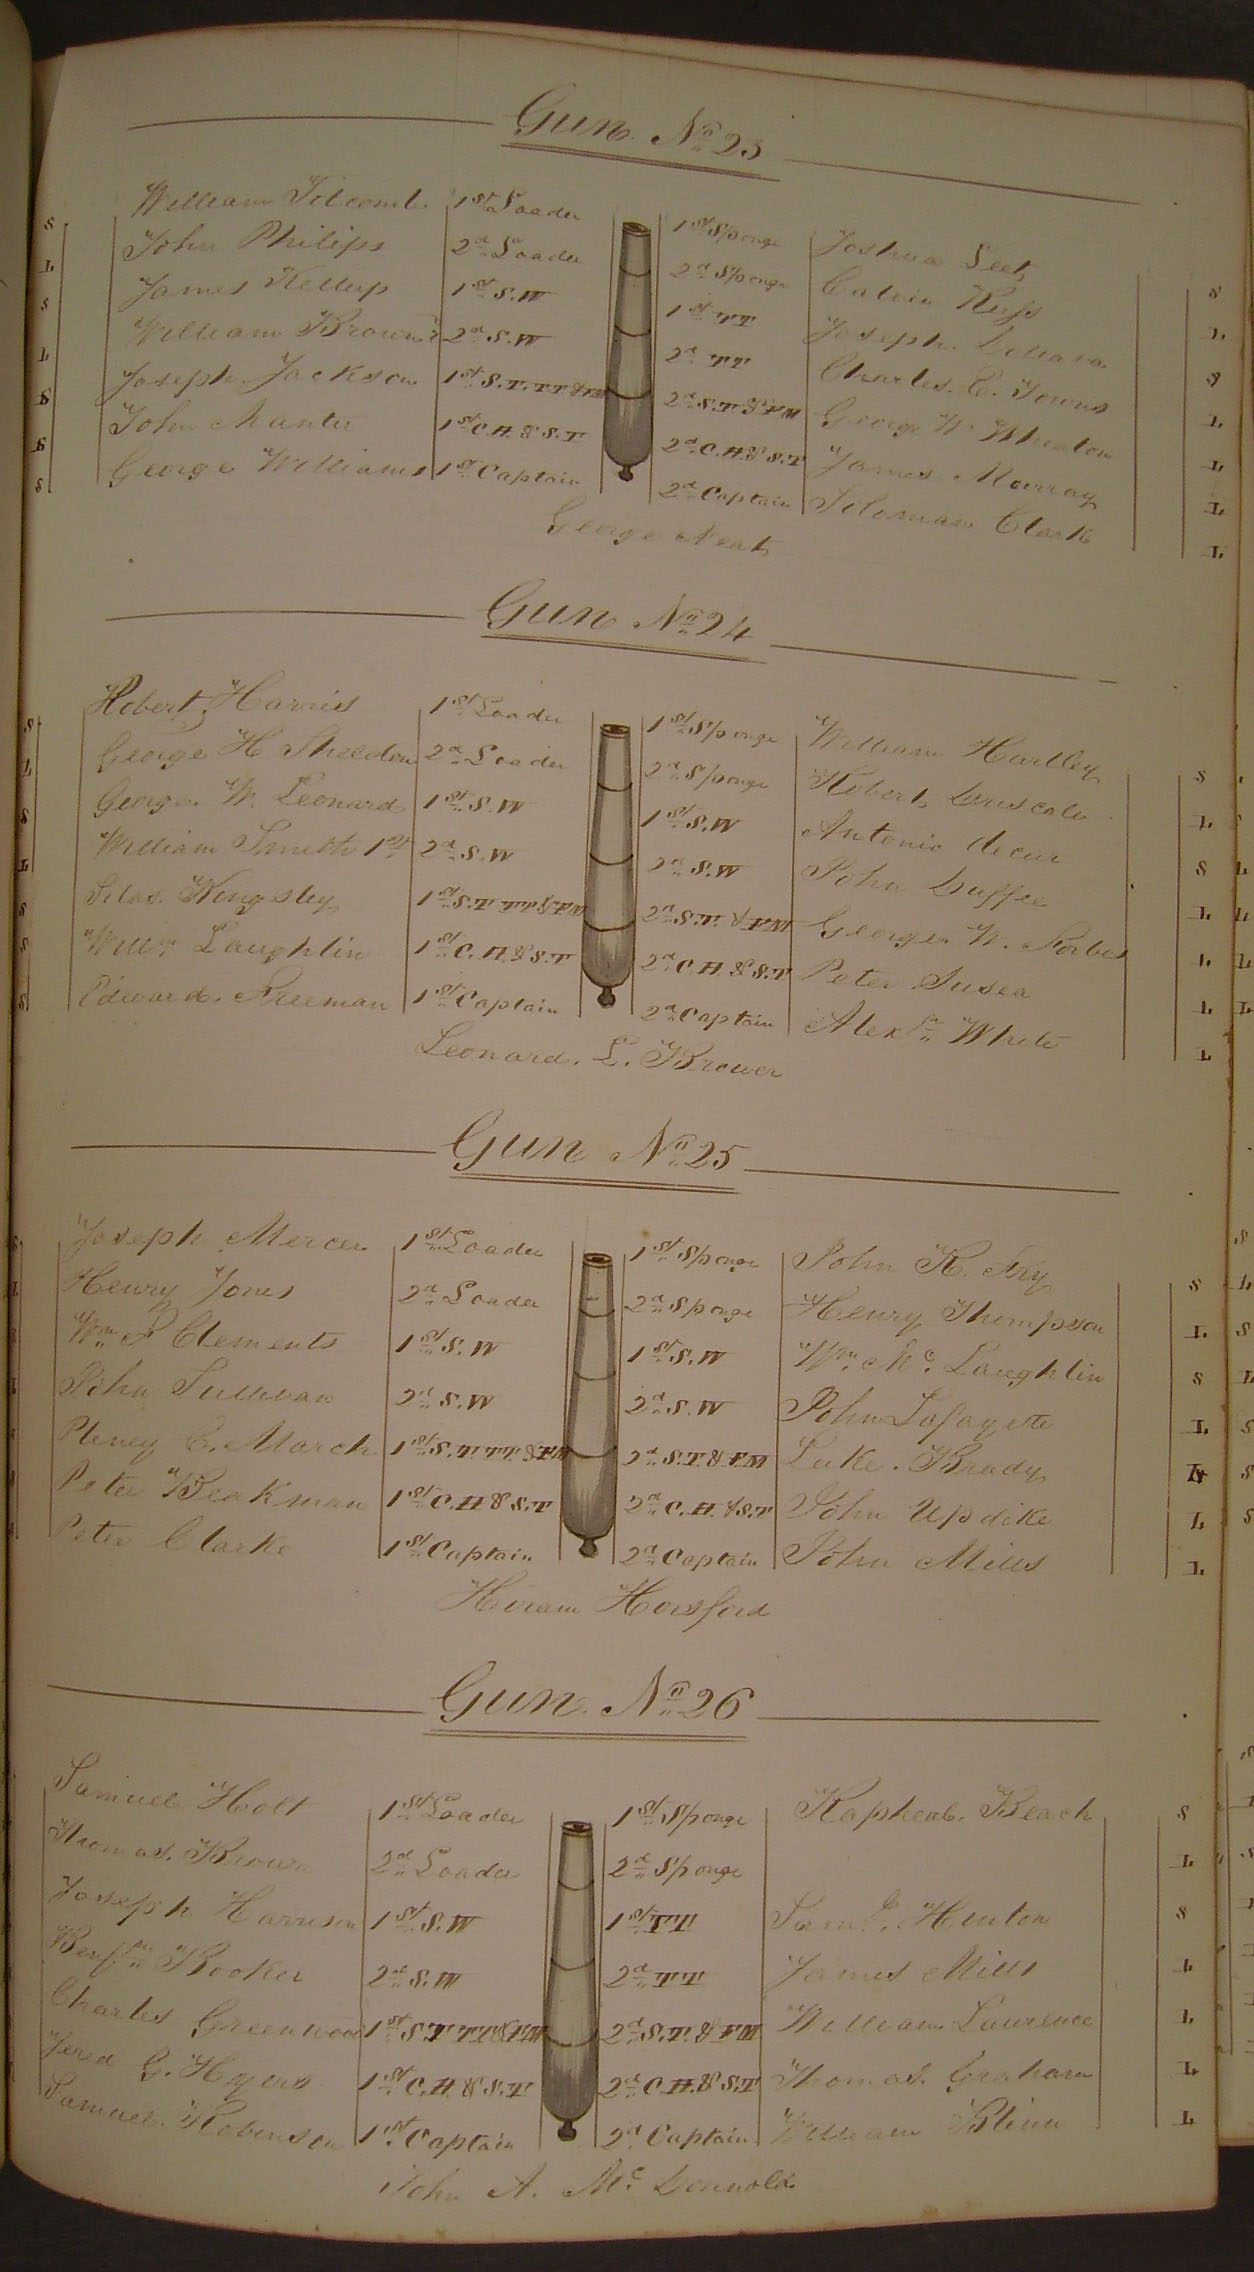 Gun. No. 23
S William 1st Loader 1st Sponge Joshua S
L John Philips 2d Loader 2d Sponge Calvin L
S James Kellup 1st S.W 1st TT Joseph S
L William Brown 2d S.W 2d TT Charles. C. Towns L
S Joseph Jackson 1st S.T. TT & FM 2d S.T & FM George W Wheaton L
S John Manter 1st C.H. & S.T 2d C.H & S.T James Murray L
S George Williams 1st Captain 2d Captain Soloman Clark L
George
Gun No. 24
S Robert Harris 1st Loader 1st Sponge William Hartley S
L George H Sheldon 2d Loader 2d Sponge Robert L
S George. W. Leonard 1st S.W 1st S.W Antonio S
L William Smith 1st 2d S.W 2d S.W John Duffee L
S Silas. Kingsley 1st S.T TT & FM 2d S.T. & FM George. W. Forbes L
S Willm Laughlin 1st C.H. & S.T 2d C.H. & S.T Peter Susea L
S Edward. Freeman 1st Captain 2d Captain Alexr White L
Leonard. L. Brower
Gun No. 25
S Joseph Mercer 1st Loader 1st Sponge John K. Fry S
L Henry Jones 2d Loader 2d Sponge Henry Thompson L
S Wm P Clements 1st S.W 1st S.W Wm. Mc. Laughlin S
L John Sullivan 2d S.W 2d S.W John Lafayette L
S Pliney C. March 1st S.T. TT. & FM 2d S.T & FM Luke. Brady L
S Peter Beakman 1st C.H & S.T 2d C.H. & S.T John Updike L
S Peter Clarke 1st Captain 2d Captain John Mills L
Hiram Horsford
Gun. No. 26
Samuel Holt 1st Loader 1st Sponge Beach S
Thomas. Brown 2d Loader 2d Sponge L
Joseph Harrison 1st S.W 1st TT Saml. Hinton S
Benjmn Booker 2d S.W 2d TT James Mills L
Charles Greenwood 1st S.T. TT & FM 2d S.T. & FM William Lawrence L
Jered G. Hyers 1st C.H. & S.T 2d C.H. & S.T Thomas. Graham L
Samuel. Robinson 1st Captain 2d Captain William Blinn L
John A. Mc Donnold